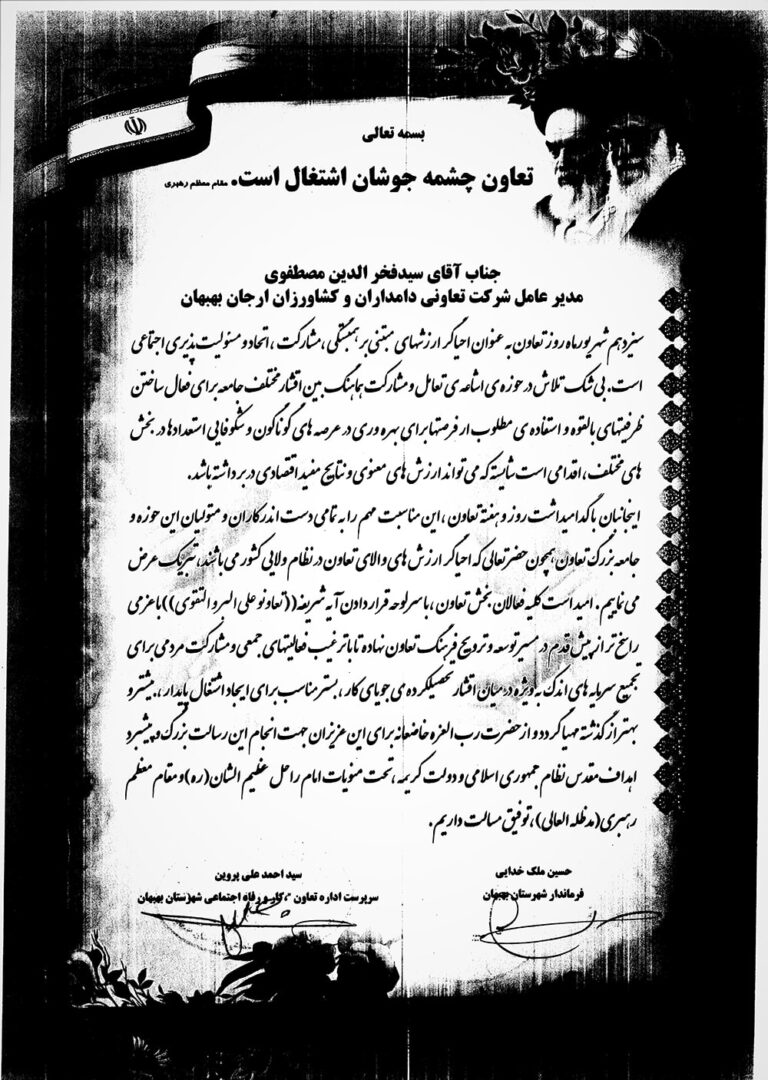 بسمه تعالی
تعاون چشمه جوشان اشتغال است. مقام معظم رهبری
جناب آقای سیدفخر الدین مصطفوی
مدیر عامل شرکت تعاونی دامداران و کشاورزان ارجان بهبهان
سیزدهم شهریورماه روز تعاون به عنوان احیاگر ارزشهای مبتنی بر همبستگی، مشارکت، اتحاد و مسئولیت پذیری اجتماعی
است. بی شک تلاش در حوزه ی اشاعه ی تعامل و مشارکت هماهنگ بین اقشار مختلف جامعه برای فعال ساختن
ظرفیتهای بالقوه و استفاده ی مطلوب از فرصتها برای بهره وری در عرصه های گوناگون و شکوفایی استعدادها در بخش
های مختلف، اقدامی است شایسته که می تواند ارزش های معنوی و نتایج مفید اقتصادی در برداشته باشد.
اینجانبان با گدامیداشت روز و هفته تعاون، این مناسبت مهم را به تمامی دست اندرکاران و متولیان این حوزه و
جامعه بزرگ تعاون همچون حضرتعالی که احیاگر ارزش های والای تعاون در نظام ولایی کشور می باشند، تبریک عرض
می نماییم. امید است کلیه فعالان بخش تعاون، با سرلوحه قرار دادن آیه شریفه ((تعاونو علی البر و التقوی)) با عزمی
راسخ تر از پیش قدم در مسیر توسعه و ترویج فرهنگ تعاون نهاده تا با ترغیب فعالیتهای جمعی و مشارکت مردمی برای
تجمیع سرمایه های اندک به ویژه در میان اقشار تحصیلکرده ی جویای کار، بستر مناسب برای ایجاد اشتغال پایدار، بیشتر و
بهتر از گذشته مهیا گردد و از حضرت رب العزه خاضعانه برای این عزیزان جهت انجام این رسالت بزرگ و پیشبرد
اهداف مقدس نظام جمهوری اسلامی و دولت کریمه، تحت منویات امام راحل عظیم الشان(ره) و مقام معظم
رهبری(مدظله العالی)، توفیق مسالت داریم.
حسین ملک خدایی
فرماندار شهرستان بهبهان
سید احمد علی پروین
سرپرست اداره تعاون، کار و رفاه اجتماعی شهرستان بهبهان